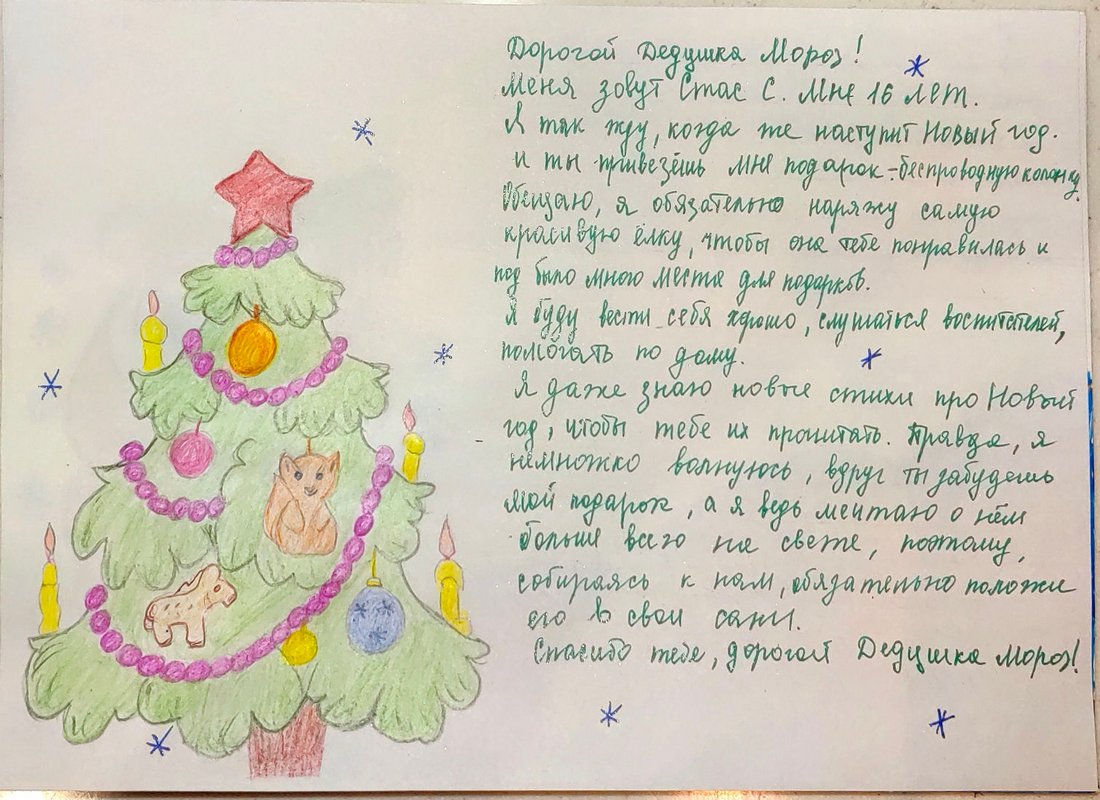 Дорогой Дедушка Мороз!
Меня зовут Стас С. Мне 16 лет.
Я так жду, когда же наступит Новый год.
и ты привезёшь мне подарок - беспроводную колонку.
Обещаю, я обязательно наряжу самую
красивую ёлку, чтобы она тебе понравилась и
под было много места для подарков.
Я буду вести себя хорошо, слушаться воспитателей,
помогать по дому.
Я даже знаю новые стихи про Новый
год, чтобы тебе их прочитать. Правда, я
немножко волнуюсь, вдруг ты забудешь
мой подарок, а я ведь мечтаю о нём
больше всего на свете, поэтому,
собираясь к нам, обязательно положи
его в свои сани.
Спасибо тебе, дорогой Дедушка Мороз!